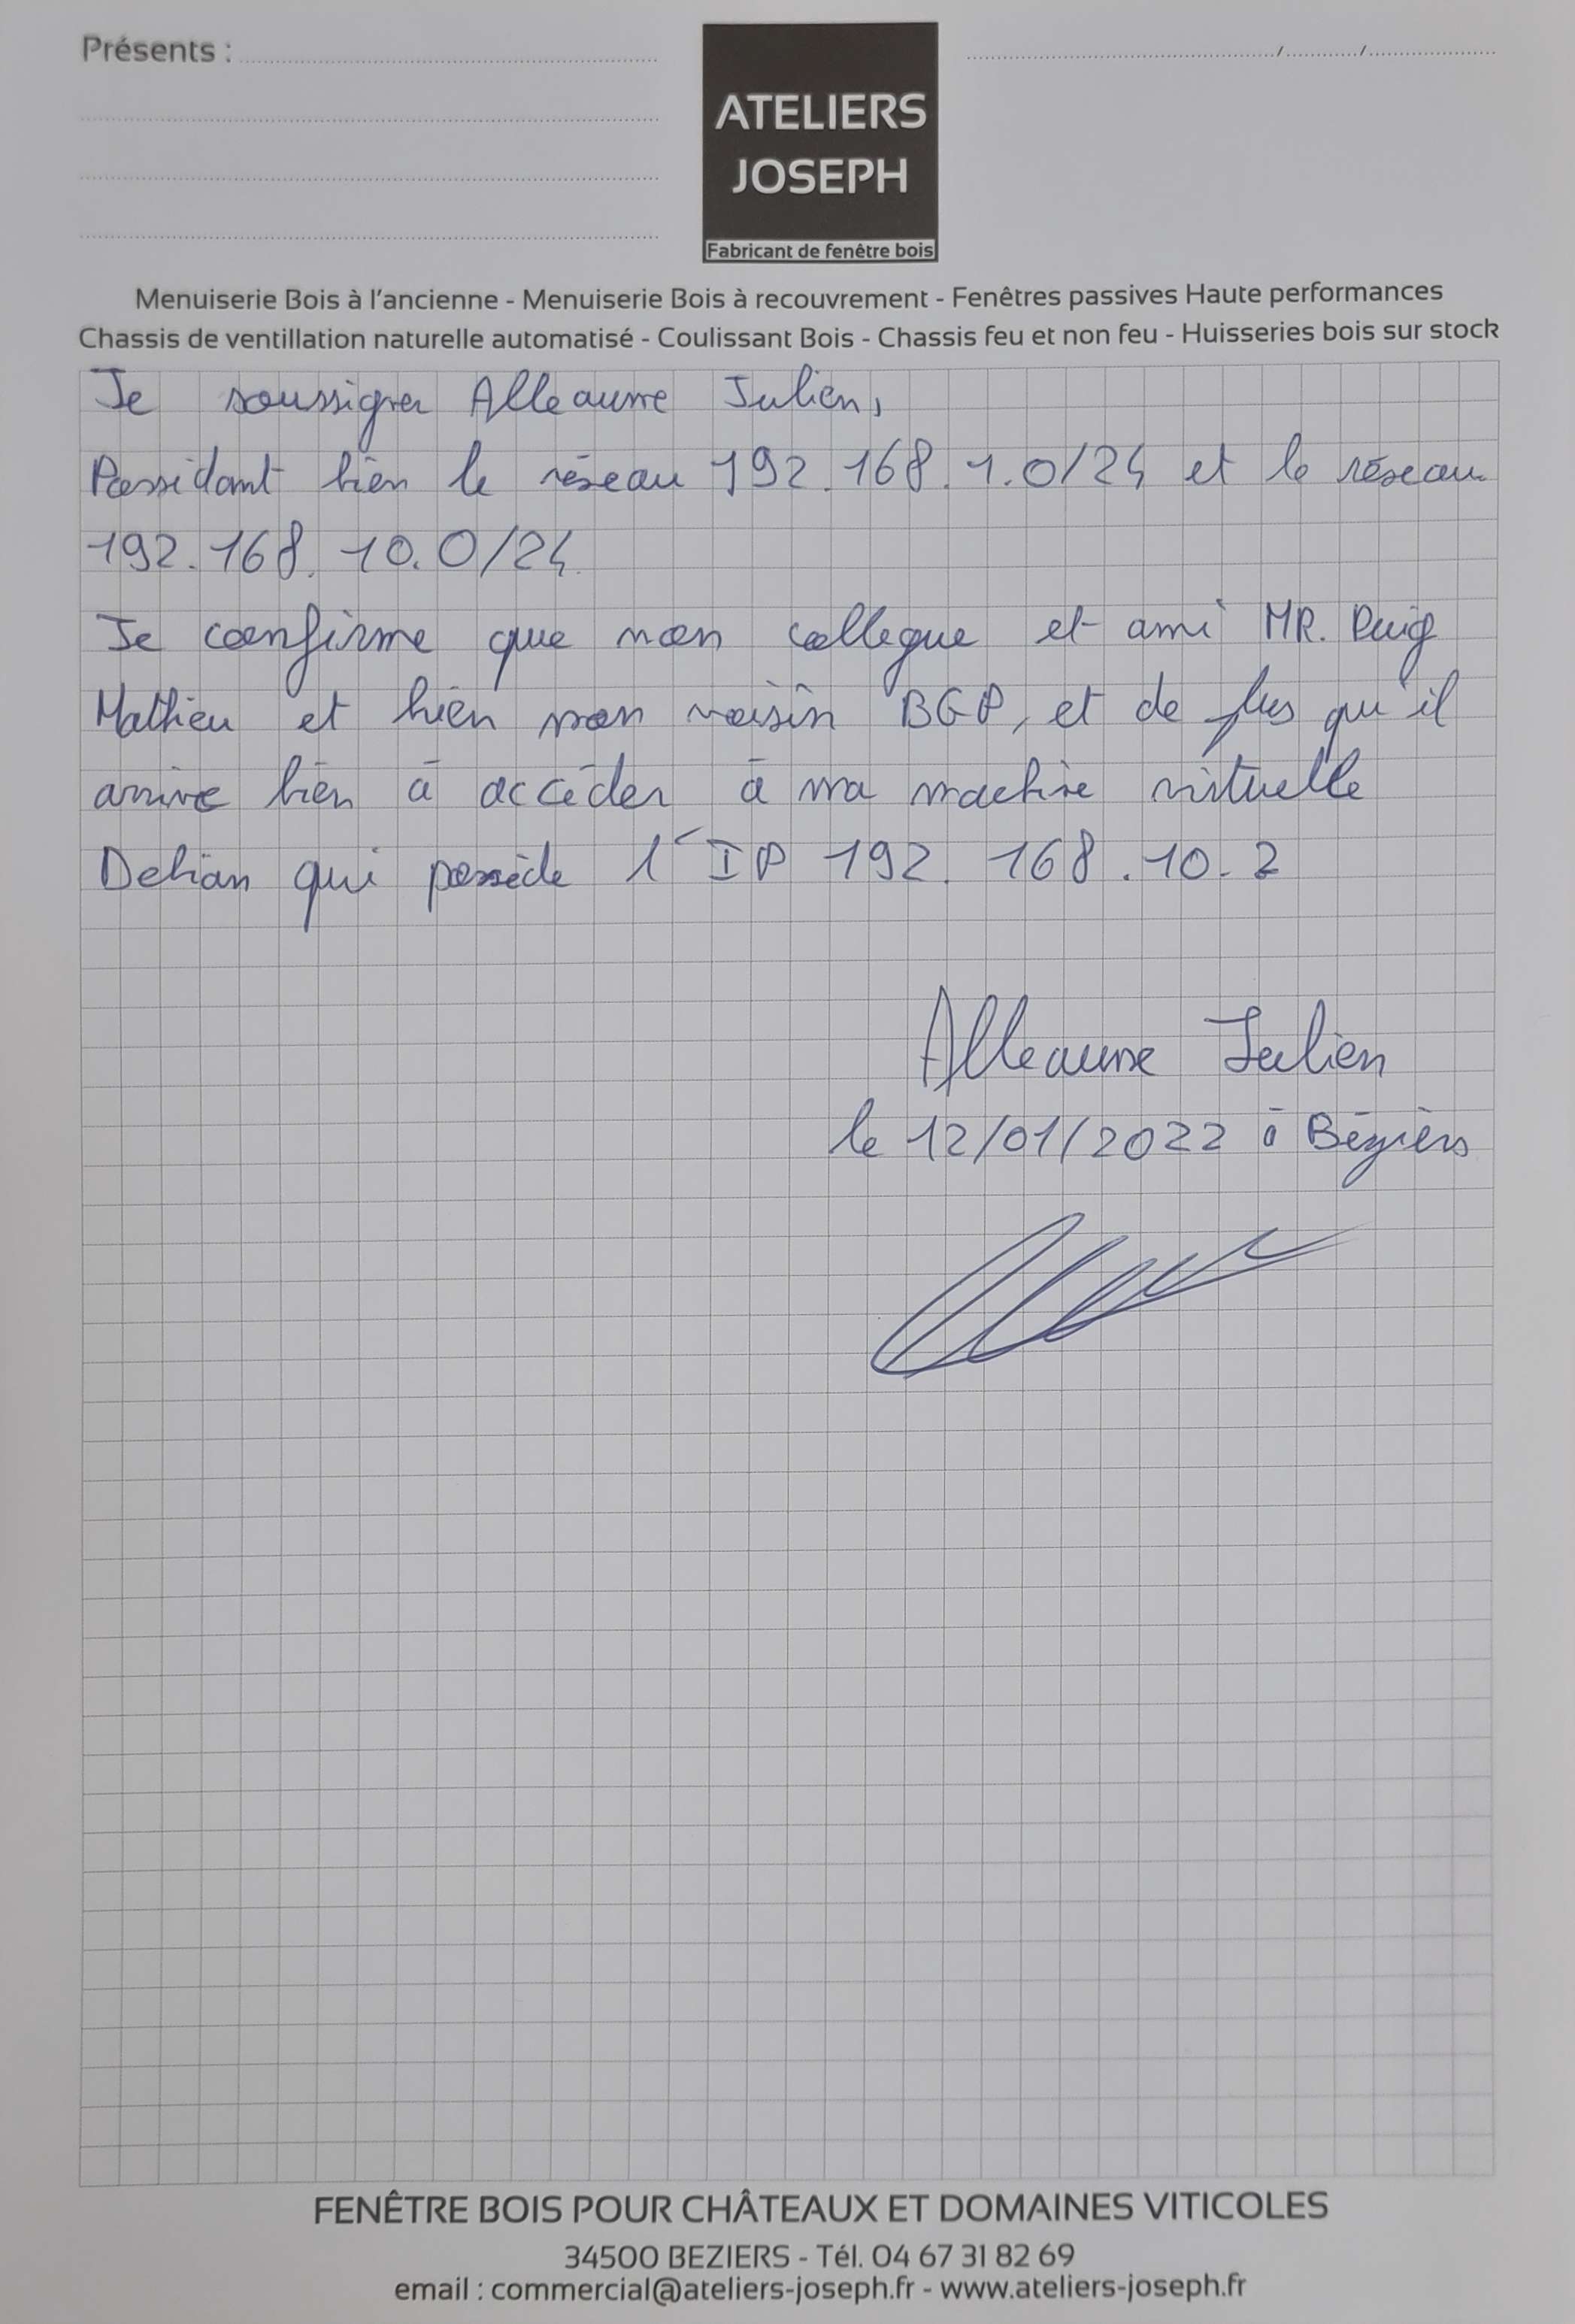 Présents :
ATELIERS
JOSEPH
Fabricant de fenêtre bois
Menuiserie Bois à l'ancienne - Menuiserie Bois à recouvrement - Fenêtres passives Haute performances
Chassis de ventillation naturelle automatisé - Coulissant Bois - Chassis feu et non feu - Huisseries bois sur stock
Je soussigner Alleaume Julien,
Possidant bien le réseau 192.168.1.0/24 et le réseau
192.168.10.0/24
Je confirme que mon collegue et ami MR. Puig
Mathieu et bien mon voisin BGP, et de plus qu'il
arrive bien à accéder à ma machine virtuelle
Debian qui possède l'IP 192.168.10.2
Alleaume Julien
le 12/01/2022 à Béziers
FENÊTRE BOIS POUR CHÂTEAUX ET DOMAINES VITICOLES
34500 BEZIERS - Tél. 04 67 31 82 69
email : commercial@ateliers-joseph.fr - www.ateliers-joseph.fr